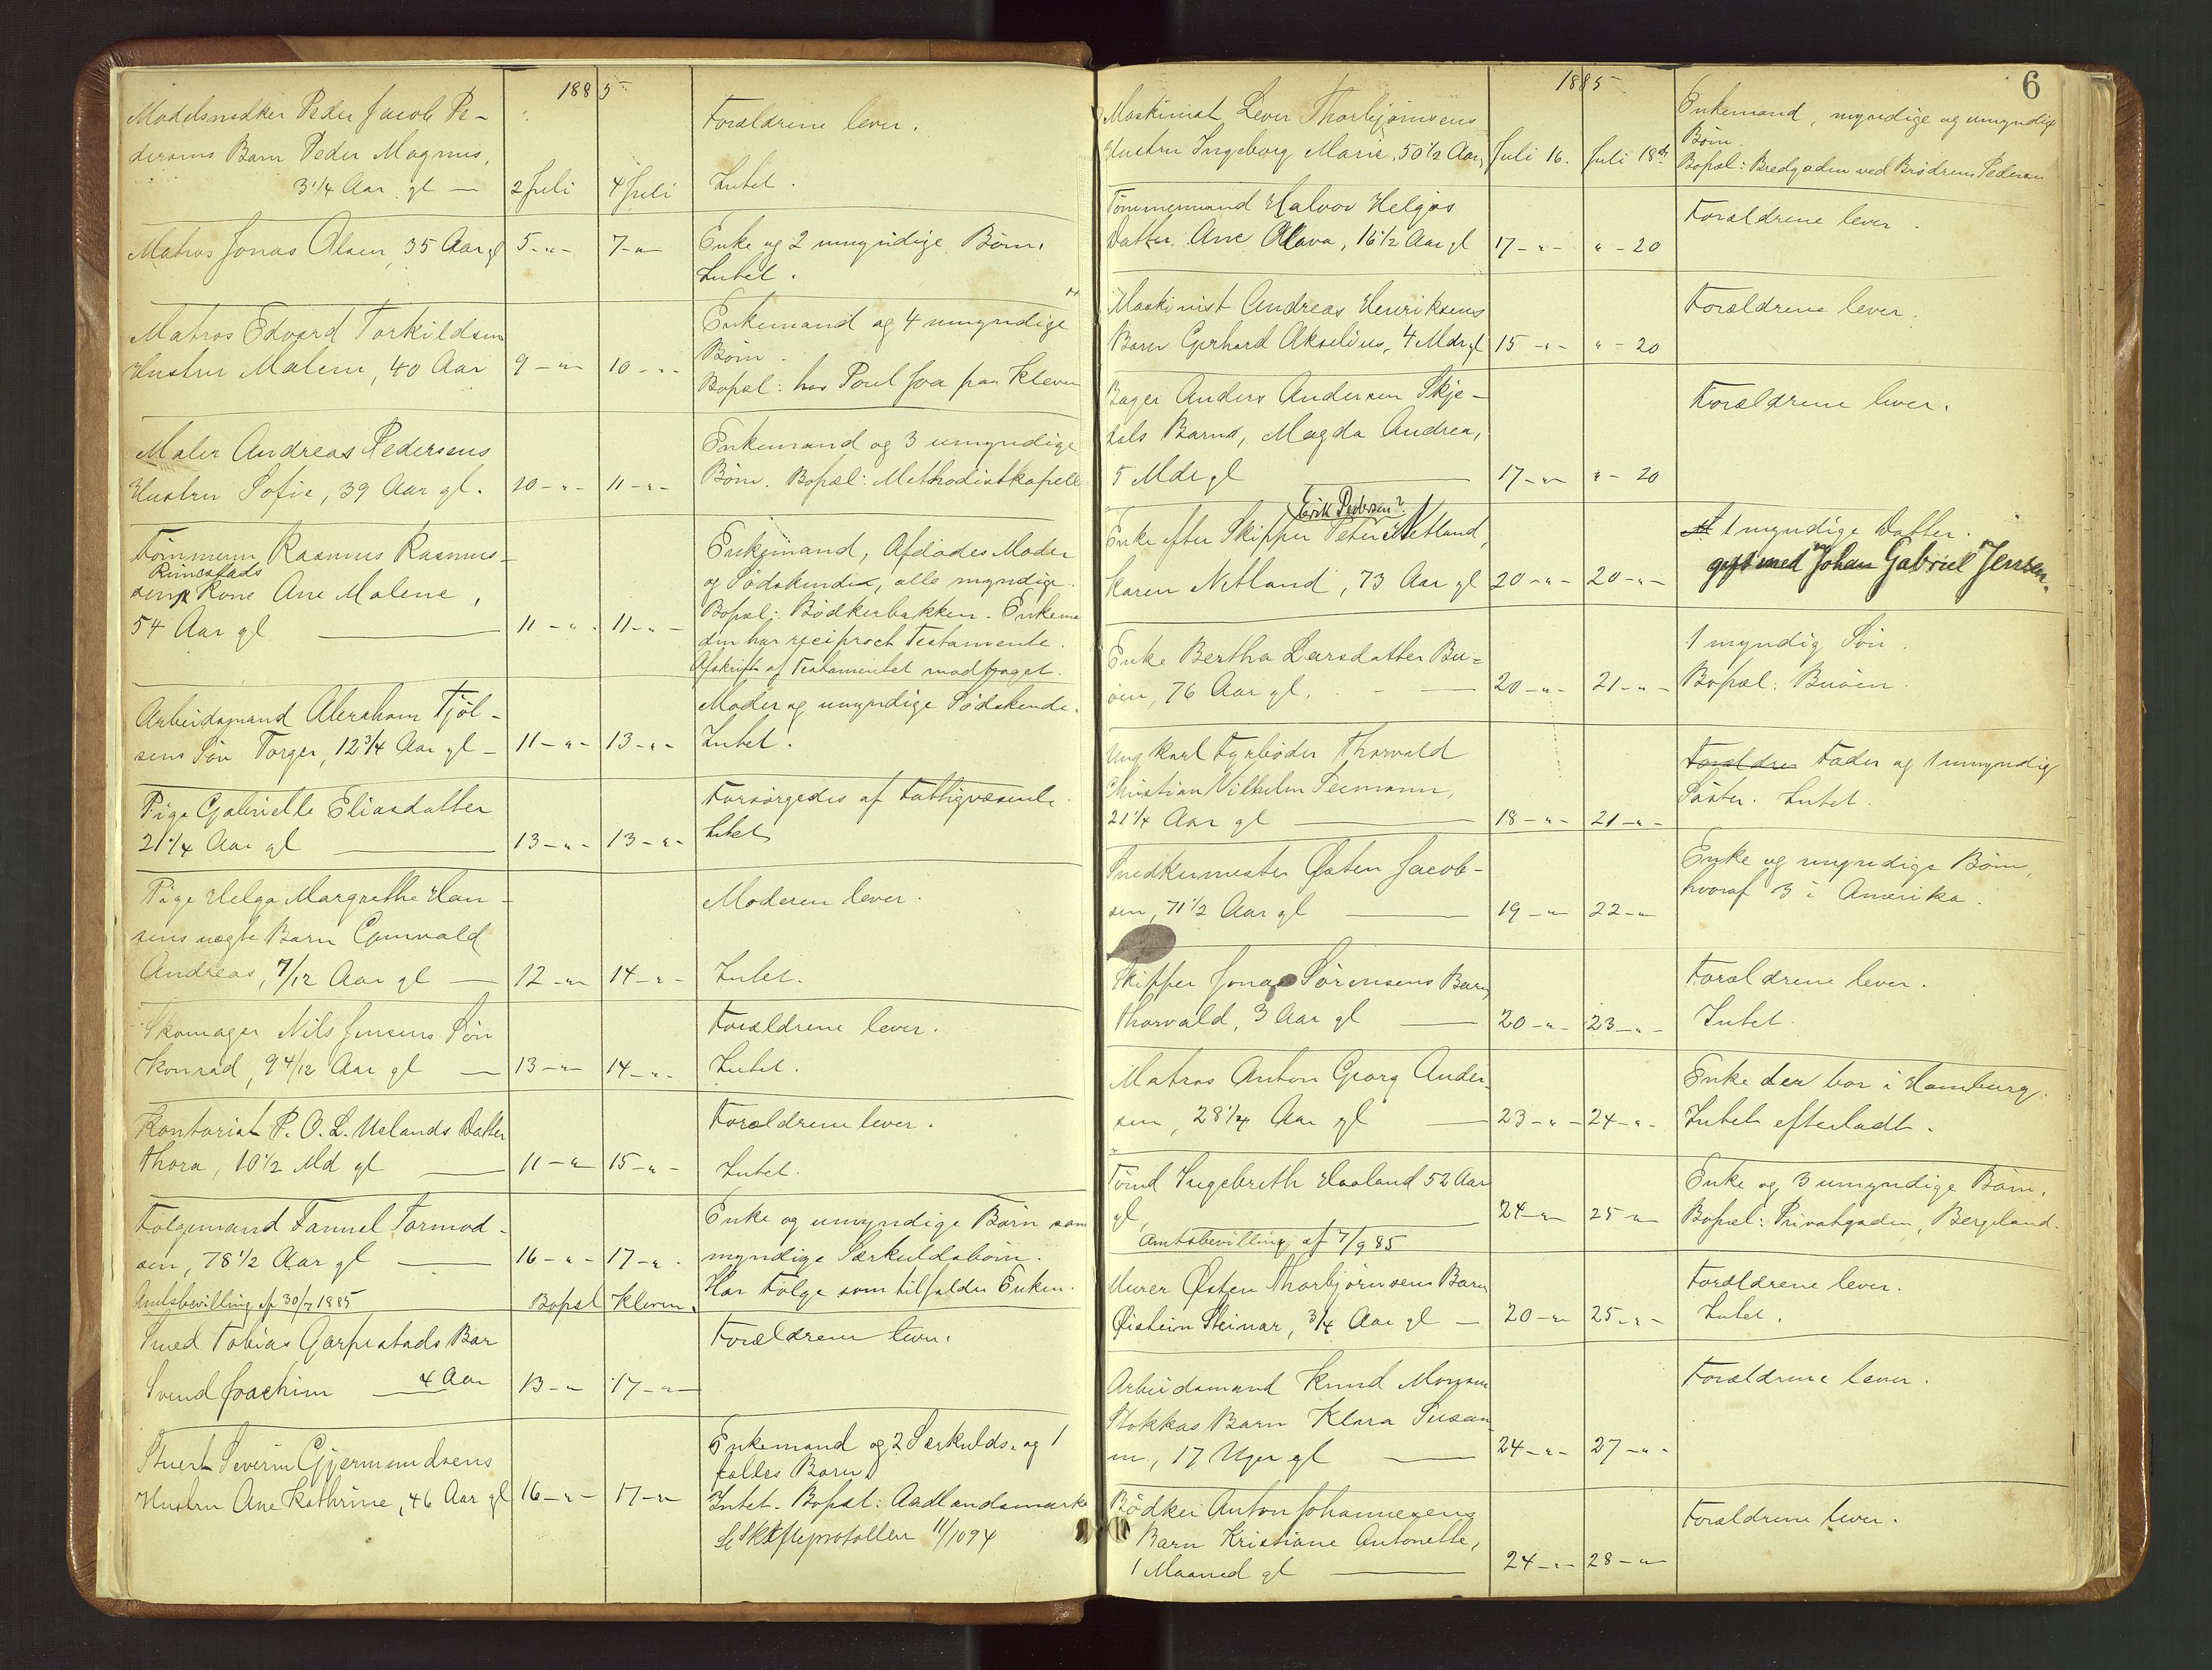 1885
Modelsnedker Peder Jacob Pe-
dersens Barn Peder Magnus,
3 1/4 Aar gl — 2 Juli 4 Juli
Forældrene lever.
Intet.
Matros Jonas Olsen, 35 Aar gl 5-"- 7-"
Enke og 2 umyndige Børn.
Intet.
Matros Edvard Torkildsen
Hustru Malene, 40 Aar 9-"- 10-"-
Enkemand og 4 umyndige
Børn.
Bopæl: hos Poul Joa paa Kleven
Maler Andreas Pedersens
Hustru Sofie, 39 Aar gl. 10-"- 11-"-
Enkemand og 3 umyndige
Børn. Bopæl: Methodistkapell
Tømmerm Rasmus Rasmus-
Rimestads
sens Kone Ane Malene,
54 Aar gl — 11-"- 11-"-
Enkemand, Afdødes Moder
og Sødskende, alle myndige.
Bopæl: Bødkerbakken. Enkema
den har reciproct Testamente.
Afskrift af Testamentet modtaget.
Arbeidsmand Abraham Tjøl-
sens Søn Torger, 12 3/4 Aar gl - 11-"- 13-"-
Moder og umyndige Sødskende.
Intet.
Pige Gabrielle Eliasdatter
21 1/4 Aar gl — 13-"- 13-"-
Forsørgedes af Fattigvæsenet.
Intet
Pige Helga Margrethe Han-
sens uægte Barn Gunvald
Andreas, 7/12 Aar gl — 12-"- 14-"-
Moderen lever.
Intet.
Skomager Nils Jensens Søn
Konrad, 9 4/12 Aar gl — 13-"- 14-"-
Forældrene lever.
Intet.
Kontorist P. O. L. Uelands Datter
Thora, 10 1/2 Md gl — 11-"- 15-"-
Forældrene lever.
Intet.
Følgemand Fannuel Tormod-
sen, 78 1/2 Aar gl — 16-"- 17-"-
Amtsbevilling af 30/7 1885 Bopæl Kleven.
Enke og umyndige Børn sam
myndige Særkuldsbørn.
Har Følge som tilfalder Enken.
Smed Tobias Garpestads Bar
Svend Joachim — 4 Aar 13-" 17-"-
Forældrene lever.
Stuert Severin Gjermundsens
Hustru Ane Kathrine, 46 Aar gl 16-"- 17-"-
Enkemand og 2 Særkulds- og 1
fælles Barn
Intet. Bopæl: Aadlandsmarke
Se Skifteprotollen 11/1094
6
1885
Maskinist Lever Thorbjørnsens
Hustru Ingeborg Marie, 50 1/2 Aar, Juli 16. Juli 18de
Enkemand, myndige og umyndige
Børn.
Bopæl: Bredgaden ved Brødrene Pedersen
Tømmermand Halvor Helgøs
Datter Ane Olava, 16 1/2 Aar gl 17-"- "-20
Forældrene lever.
Maskinist Andreas Henriksens
Barn Gerhard Akselius, 4 Mdr gl 15-"- "-20
Forældrene lever.
Bager Anders Andersen Skje-
dals Barn, Magda Andrea,
5 Mdr gl — 17-"- "-20
Forældrene lever.
Erik Pedersen?
Enke efter Skipper Peter Netland,
Karen Netland, 73 Aar gl 20-"- 20-"-
1 myndige Datter.
gift med Johan Gabriel Jensen.
Enke Bertha Larsdatter Bu-
øen, 76 Aar gl. — 20-"- 21-"-
1 myndig Søn.
Bopæl: Buøen.
Ungkarl Fyrbøder Thorvald
Christian Vilhelm Seemann,
21 1/4 Aar gl — 18-"- 21-"-
Forældre Fader og 1 umyndig
Søster. Intet.
Snedkermester Østen Jacob-
sen, 71 1/2 Aar gl — 19-"- 22-"
Enke og myndige Børn,
hvoraf 3 i Amerika.
Skipper Jonas Sørensens Barn
Thorvald, 3 Aar gl — 20-"- 23-"-
Forældrene lever.
Intet.
Matros Anton Georg Ander-
sen, 28 1/4 Aar gl — 23-"- 24-"-
Enke der bor i Hamburg.
Intet efterladt.
Tømd Ingebreth Haaland 52 Aar
gl, — 24-"- 25-"
Amtsbevilling af 7/9 85
Enke og 3 umyndige Børn.
Bopæl: Privatgaden, Bergeland.
Murer Østen Thorbjørnsens Barn
Øistein Steinar, 3/4 Aar gl — 20-"- 25-"-
Forældrene lever.
Intet.
Arbeidsmand Knud Monsen
Stokkas Barn Klara Susan
ne, 17 Uger gl — 24-"- 27-"-
Forældrene lever.
Bødker Anton Johannesens
Barn Kristiane Antonette,
1 Maaned gl — 24-"- 28-"-
Forældrene lever.